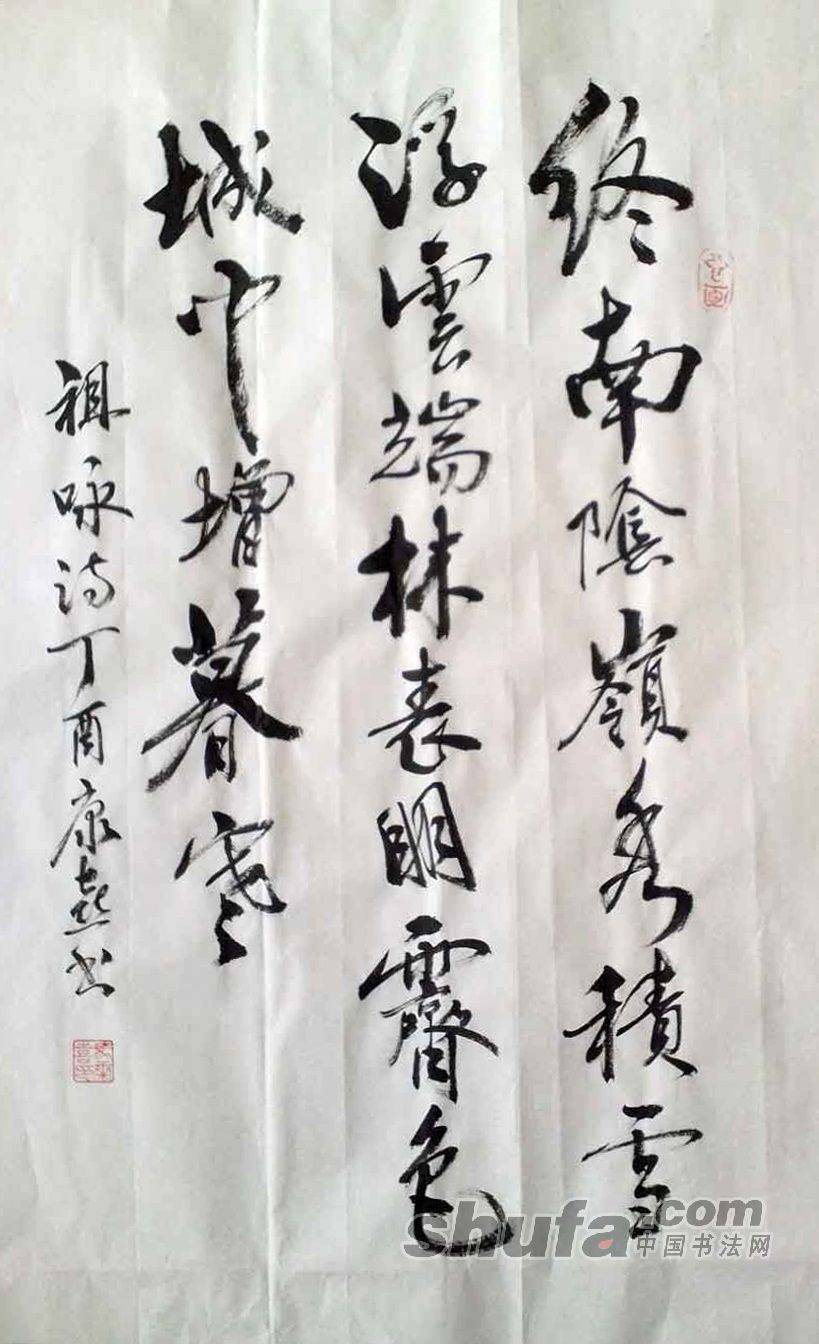 終南陰嶺秀積雪
浮雲端林表明霽色
城中增暮寒
祖咏詩丁酉康熹书
shufa.com
中国书法网